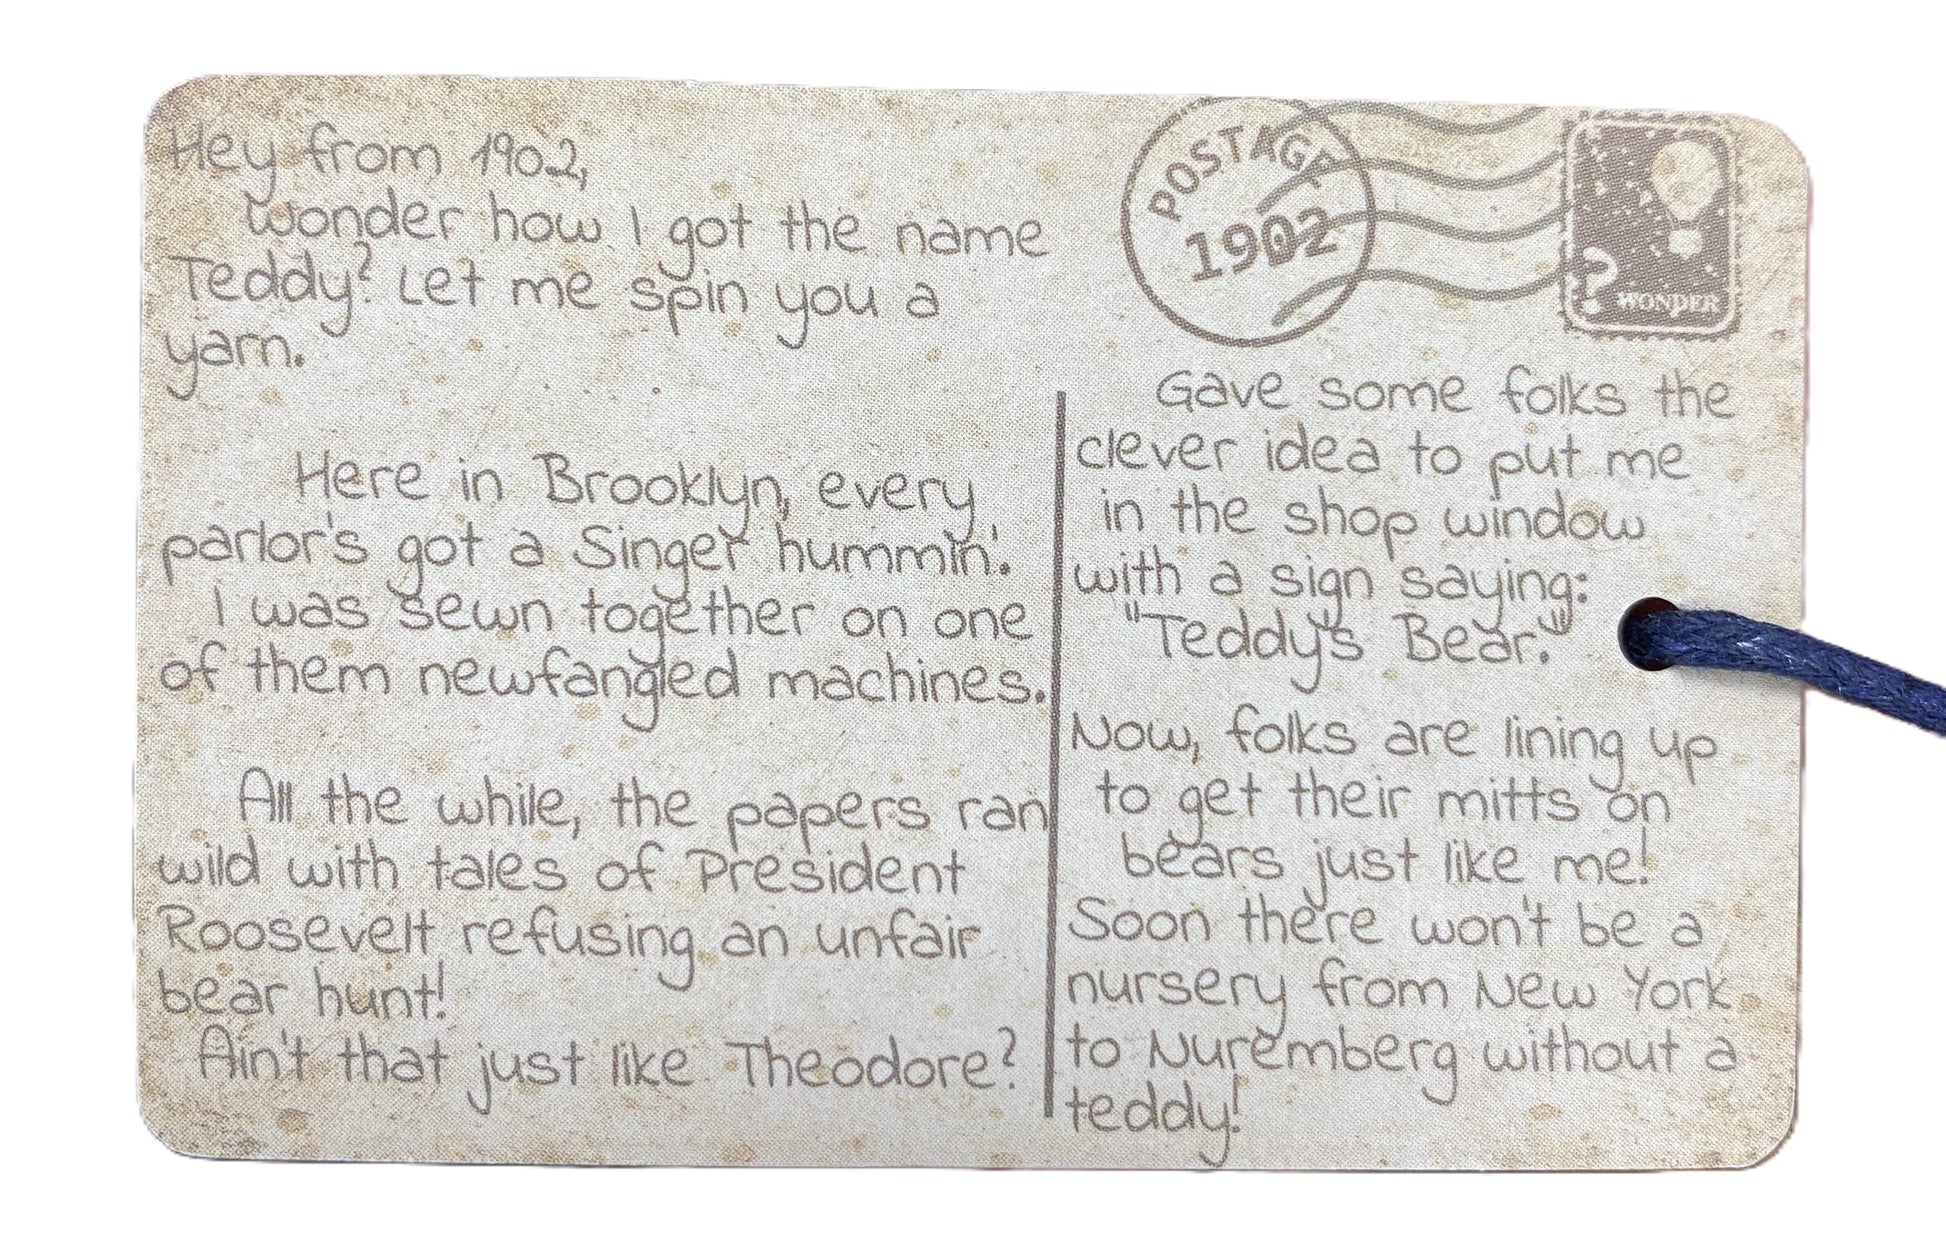 Hey from 1902,
Wonder how I got the name
Teddy? Let me spin you a
yarn.
Here in Brooklyn, every
parlor's got a Singer hummin'.
I was sewn together on one
of them newfangled machines.
All the while, the papers ran
wild with tales of President
Roosevelt refusing an unfair
bear hunt!
Ain't that just like Theodore?
POSTAGE
1902
? WONDER
Gave some folks the
clever idea to put me
in the shop window
with a sign saying:
"Teddy's Bear."
Now, folks are lining up
to get their mitts on
bears just like me!
Soon there won't be a
nursery from New York
to Nuremberg without a
teddy!